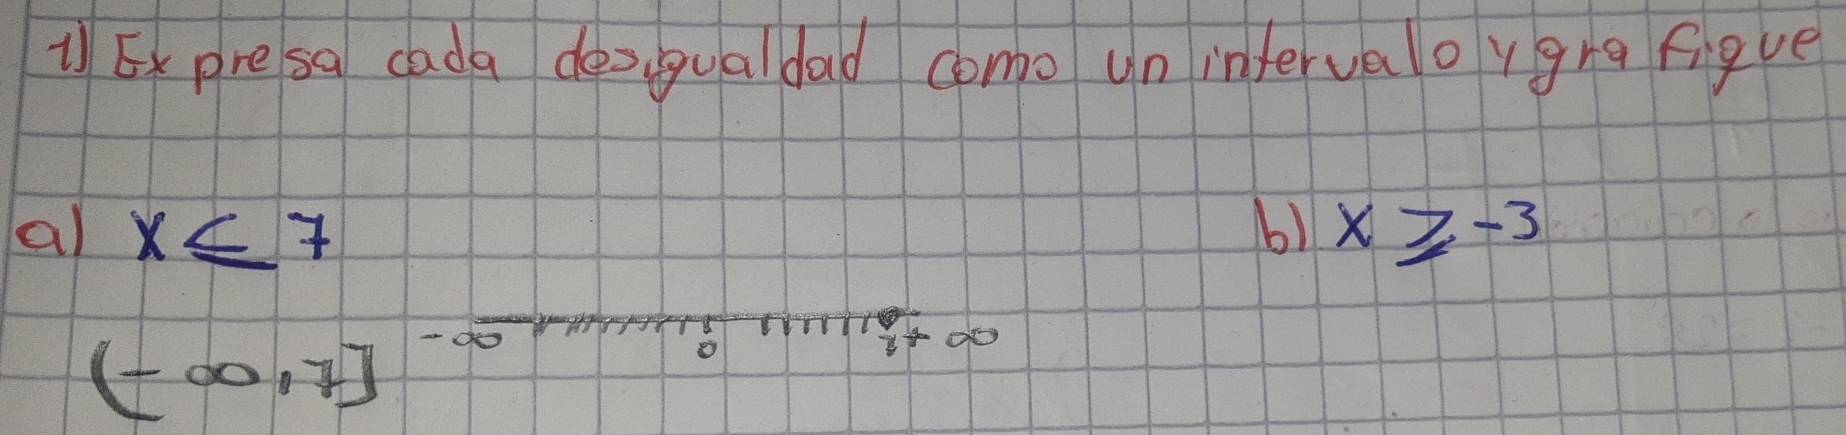 1) Expresa cada desigualdad como un intervalo y grafique
a) x ≤ 7
b) x ≥ -3
-∞ 0 7 +∞
(-∞, 7]